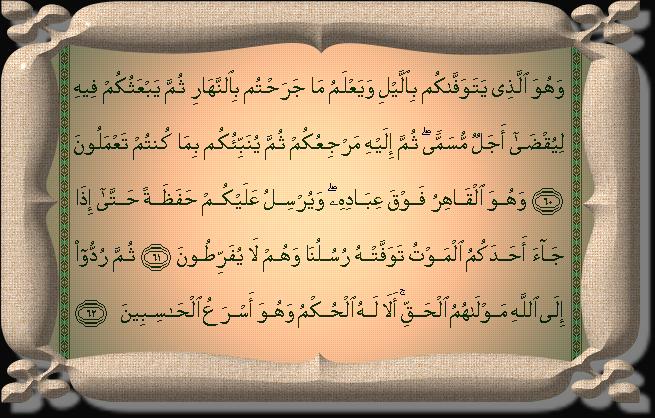 وَهُوَ ٱلَّذِى يَتَوَفَّىٰكُم بِٱلَّيْلِ وَيَعْلَمُ مَا جَرَحْتُم بِٱلنَّهَارِ ثُمَّ يَبْعَثُكُمْ فِيهِ
لِيُقْضَىٰٓ أَجَلٌ مُّسَمًّى ۖ ثُمَّ إِلَيْهِ مَرْجِعُكُمْ ثُمَّ يُنَبِّئُكُم بِمَا كُنتُمْ تَعْمَلُونَ
٦٠ وَهُوَ ٱلْقَاهِرُ فَوْقَ عِبَادِهِۦ ۖ وَيُرْسِلُ عَلَيْكُمْ حَفَظَةً حَتَّىٰٓ إِذَا
جَآءَ أَحَدَكُمُ ٱلْمَوْتُ تَوَفَّتْهُ رُسُلُنَا وَهُمْ لَا يُفَرِّطُونَ ٦١ ثُمَّ رُدُّوٓا۟
إِلَى ٱللَّهِ مَوْلَىٰهُمُ ٱلْحَقِّ ۚ أَلَا لَهُ ٱلْحُكْمُ وَهُوَ أَسْرَعُ ٱلْحَـٰسِبِينَ ٦٢